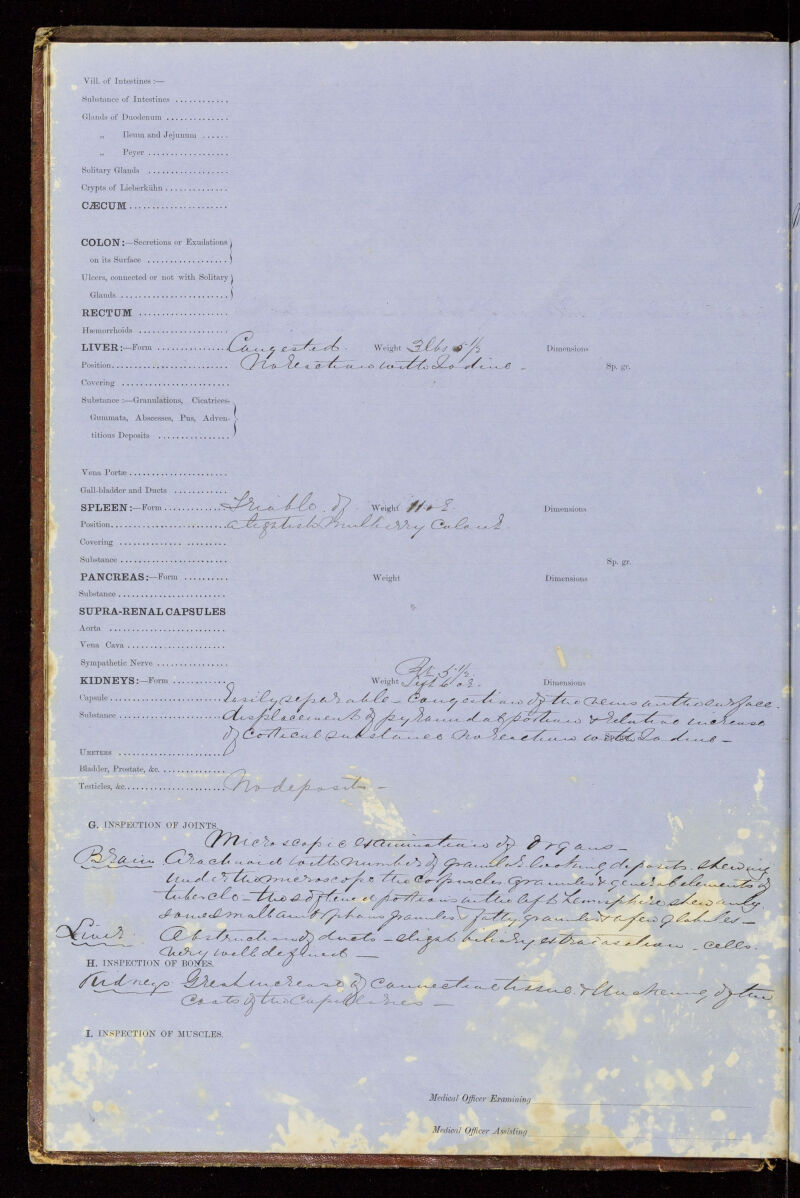 Vill. of Intestines :—
Substance of Intestines ............
Glands of Duodenum ..............
„ Ileum and Jejunum ......
„ Peyer ..................
Solitary Glands ..................
Crypts of Lieberkühn ..............
CÆCUM ......................
COLON:—Secretions or Exudations
on its Surface ..................
Ulcers, connected or not with Solitary
Glands ........................
RECTUM ....................
Hæmorrhoids ....................
LIVER:—Form ................ Congested. Weight 3 lbs 5½ Dimensions
Position.......................... No reaction with Iodine - Sp. gr.
Covering ........................
Substance:—Granulations, Cicatrices,
Gummata, Abscesses, Pus, Adven-
titious Deposits ................
Vena Portæ ......................
Gall-bladder and Ducts ............
SPLEEN:—Form ............. Friable. of Weight 11 oz Dimensions
Position.......................... a lightish Mulberry Colour.
Covering ........................
Substance ........................ Sp. gr.
PANCREAS:—Form .......... Weight Dimensions
Substance ........................
SUPRA-RENAL CAPSULES
Aorta ..........................
Vena Cava ......................
Sympathetic Nerve ................
Rt 5½
KIDNEYS:—Form ............ Weight Left 6 oz. Dimensions
Capsule .......................... Easily separable - Congestion of the veins on the surface.
Substance ........................ displacement of pyramidal portion & relative increase
of Cortical substance No reaction with Iodine -
URETERS ........................
Bladder, Prostate, &c. ..............
Testicles, &c....................... No deposit -
G. INSPECTION OF JOINTS.
Microscopic examination of Organs -
Brain Arachnoid with number of granular looking deposits. shewing
under the microscope the corpuscles granules & general elements of
tubercle - the softened portions in the left hemisphere shew only
some small amorphous granules fatty granules & a few globules -
Liver Obstruction of ducts - slight biliary extravasation - cells.
very well defined -
H. INSPECTION OF BONES.
Kidneys Great increase of connective tissue. & thickening of the
coats of the capillaries -
I. INSPECTION OF MUSCLES.
Medical Officer Examining
Medical Officer Assisting